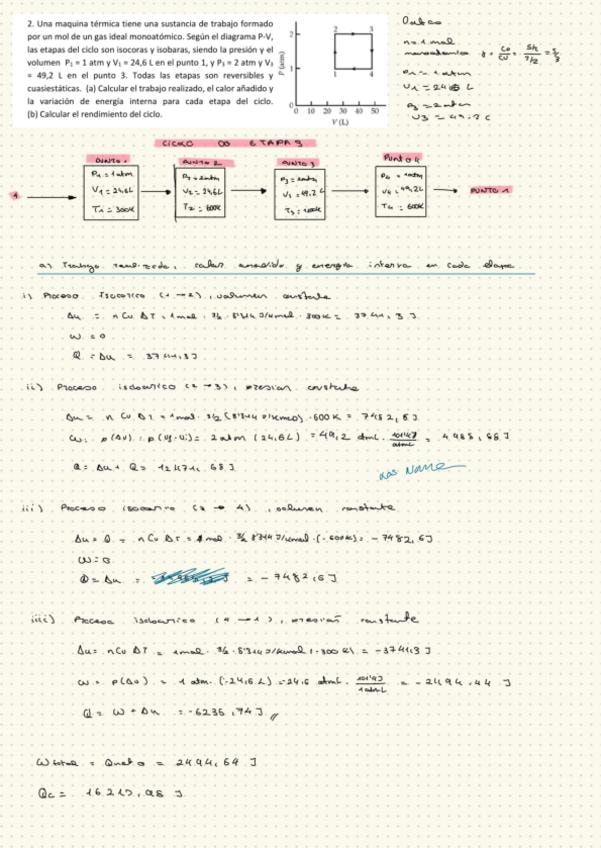 2. Una maquina térmica tiene una sustancia de trabajo formado
por un mol de un gas ideal monoatómico. Según el diagrama P-V,
las etapas del ciclo son isocoras y isobaras, siendo la presión y el
volumen P₁ = 1 atm y V₁ = 24,6 L en el punto 1, y P₃ = 2 atm y V₃
= 49,2 L en el punto 3. Todas las etapas son reversibles y
cuasiestáticas. (a) Calcular el trabajo realizado, el calor añadido y
la variación de energía interna para cada etapa del ciclo.
(b) Calcular el rendimiento del ciclo.
P (atm)
2
1
0
2 3
1 4
0 10 20 30 40 50
V (L)
Datos
n = 1 mol
P₁ = 1 atm
V₁ = 24,6 L
P₃ = 2 atm
V₃ = 49,2 L
CICLO DE ETAPAS
PUNTO 1
P₁ = 1 atm
V₁ = 24,6L
T₁ = 300K
PUNTO 2
P₂ = 2 atm
V₂ = 24,6L
T₂ = 600K
PUNTO 3
P₃ = 2 atm
V₃ = 49,2L
PUNTO 4
V₄ = 49,2L
T₄ = 600K
PUNTO 1
a) Trabajo realizado, calor añadido y energía interna en cada etapa
i) Proceso Isocorico (1 → 2), volumen constante
Δu = n Cv ΔT = 1mol · 3/2 · 8'314 J/Kmol · 300K = 3741,3 J
W = 0
Q = Δu = 3741,3J
ii) Proceso isobarico (2 → 3), presion constante
Δu = n Cv ΔT = 1mol · 3/2 (8'314 J/Kmol) · 600K = 7482,6J
W = p(ΔV) = p(Vf-Vi) = 2 atm (24,6L) = 49,2 atmL ·
Q = Δu +
iii) Proceso isocorico (3 → 4), volumen constante
Δu = Q = n Cv ΔT = 1mol · 3/2 8'314 J/Kmol · (-600K) = -7482,6J
W = 0
Q = Δu = -7482,6J
iiii) Proceso isobarico (4 → 1), presión constante
Δu = n Cv ΔT = 1mol · 3/2 · 8'314 J/Kmol (-300 K) = -3741,3 J
W = p(ΔV) = 1 atm · (-24,6 L) =
Q = W + Δu = -6235,74J
W total = Qneto =
Qc =